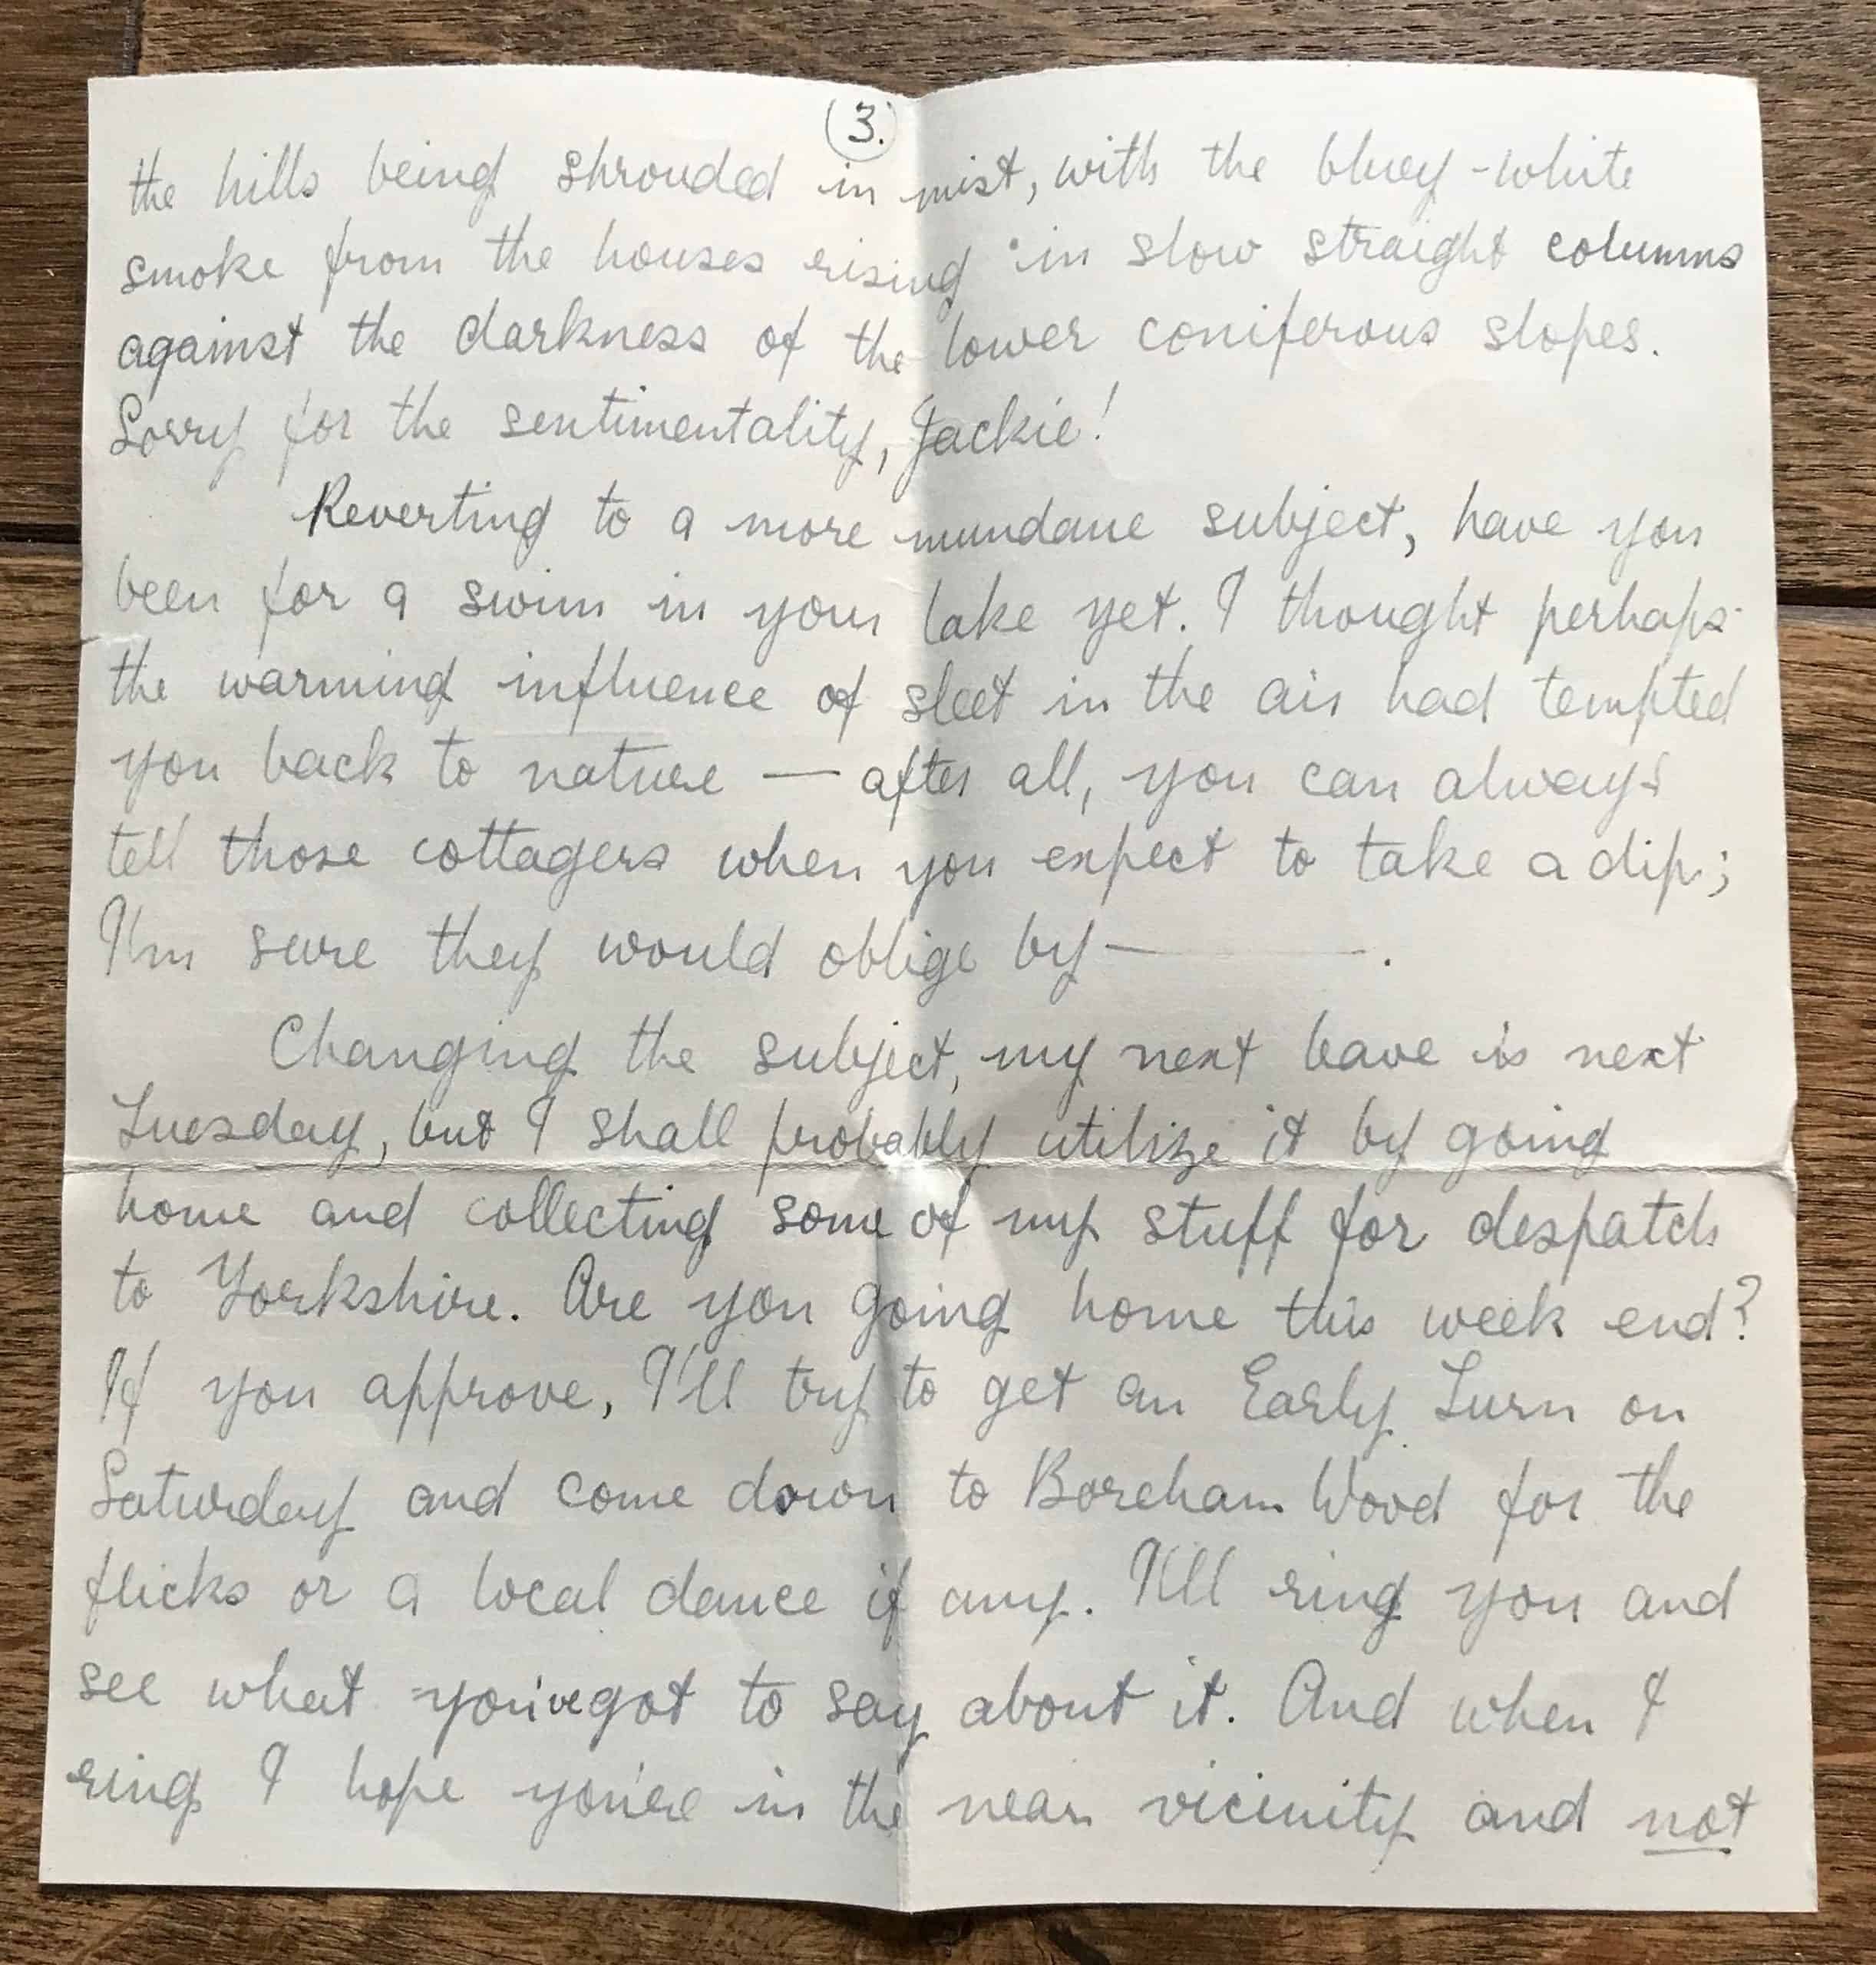 (3.)
the hills being shrouded in mist, with the bluey-white
smoke from the houses rising in slow straight columns
against the darkness of the lower coniferous slopes.
Sorry for the sentimentality, Jackie!
Reverting to a more mundane subject, have you
been for a swim in your lake yet. I thought perhaps
the warming influence of sleet in the air had tempted
you back to nature — after all, you can always
tell those cottagers when you expect to take a dip;
I'm sure they would oblige by — .
Changing the subject, my next leave is next
Tuesday, but I shall probably utilize it by going
home and collecting some of my stuff for despatch
to Yorkshire. Are you going home this week end?
If you approve, I'll try to get an Early Turn on
Saturday and come down to Boreham Wood for the
flicks or a local dance if any. I'll ring you and
see what you've got to say about it. And when I
ring I hope you're in the near vicinity and not